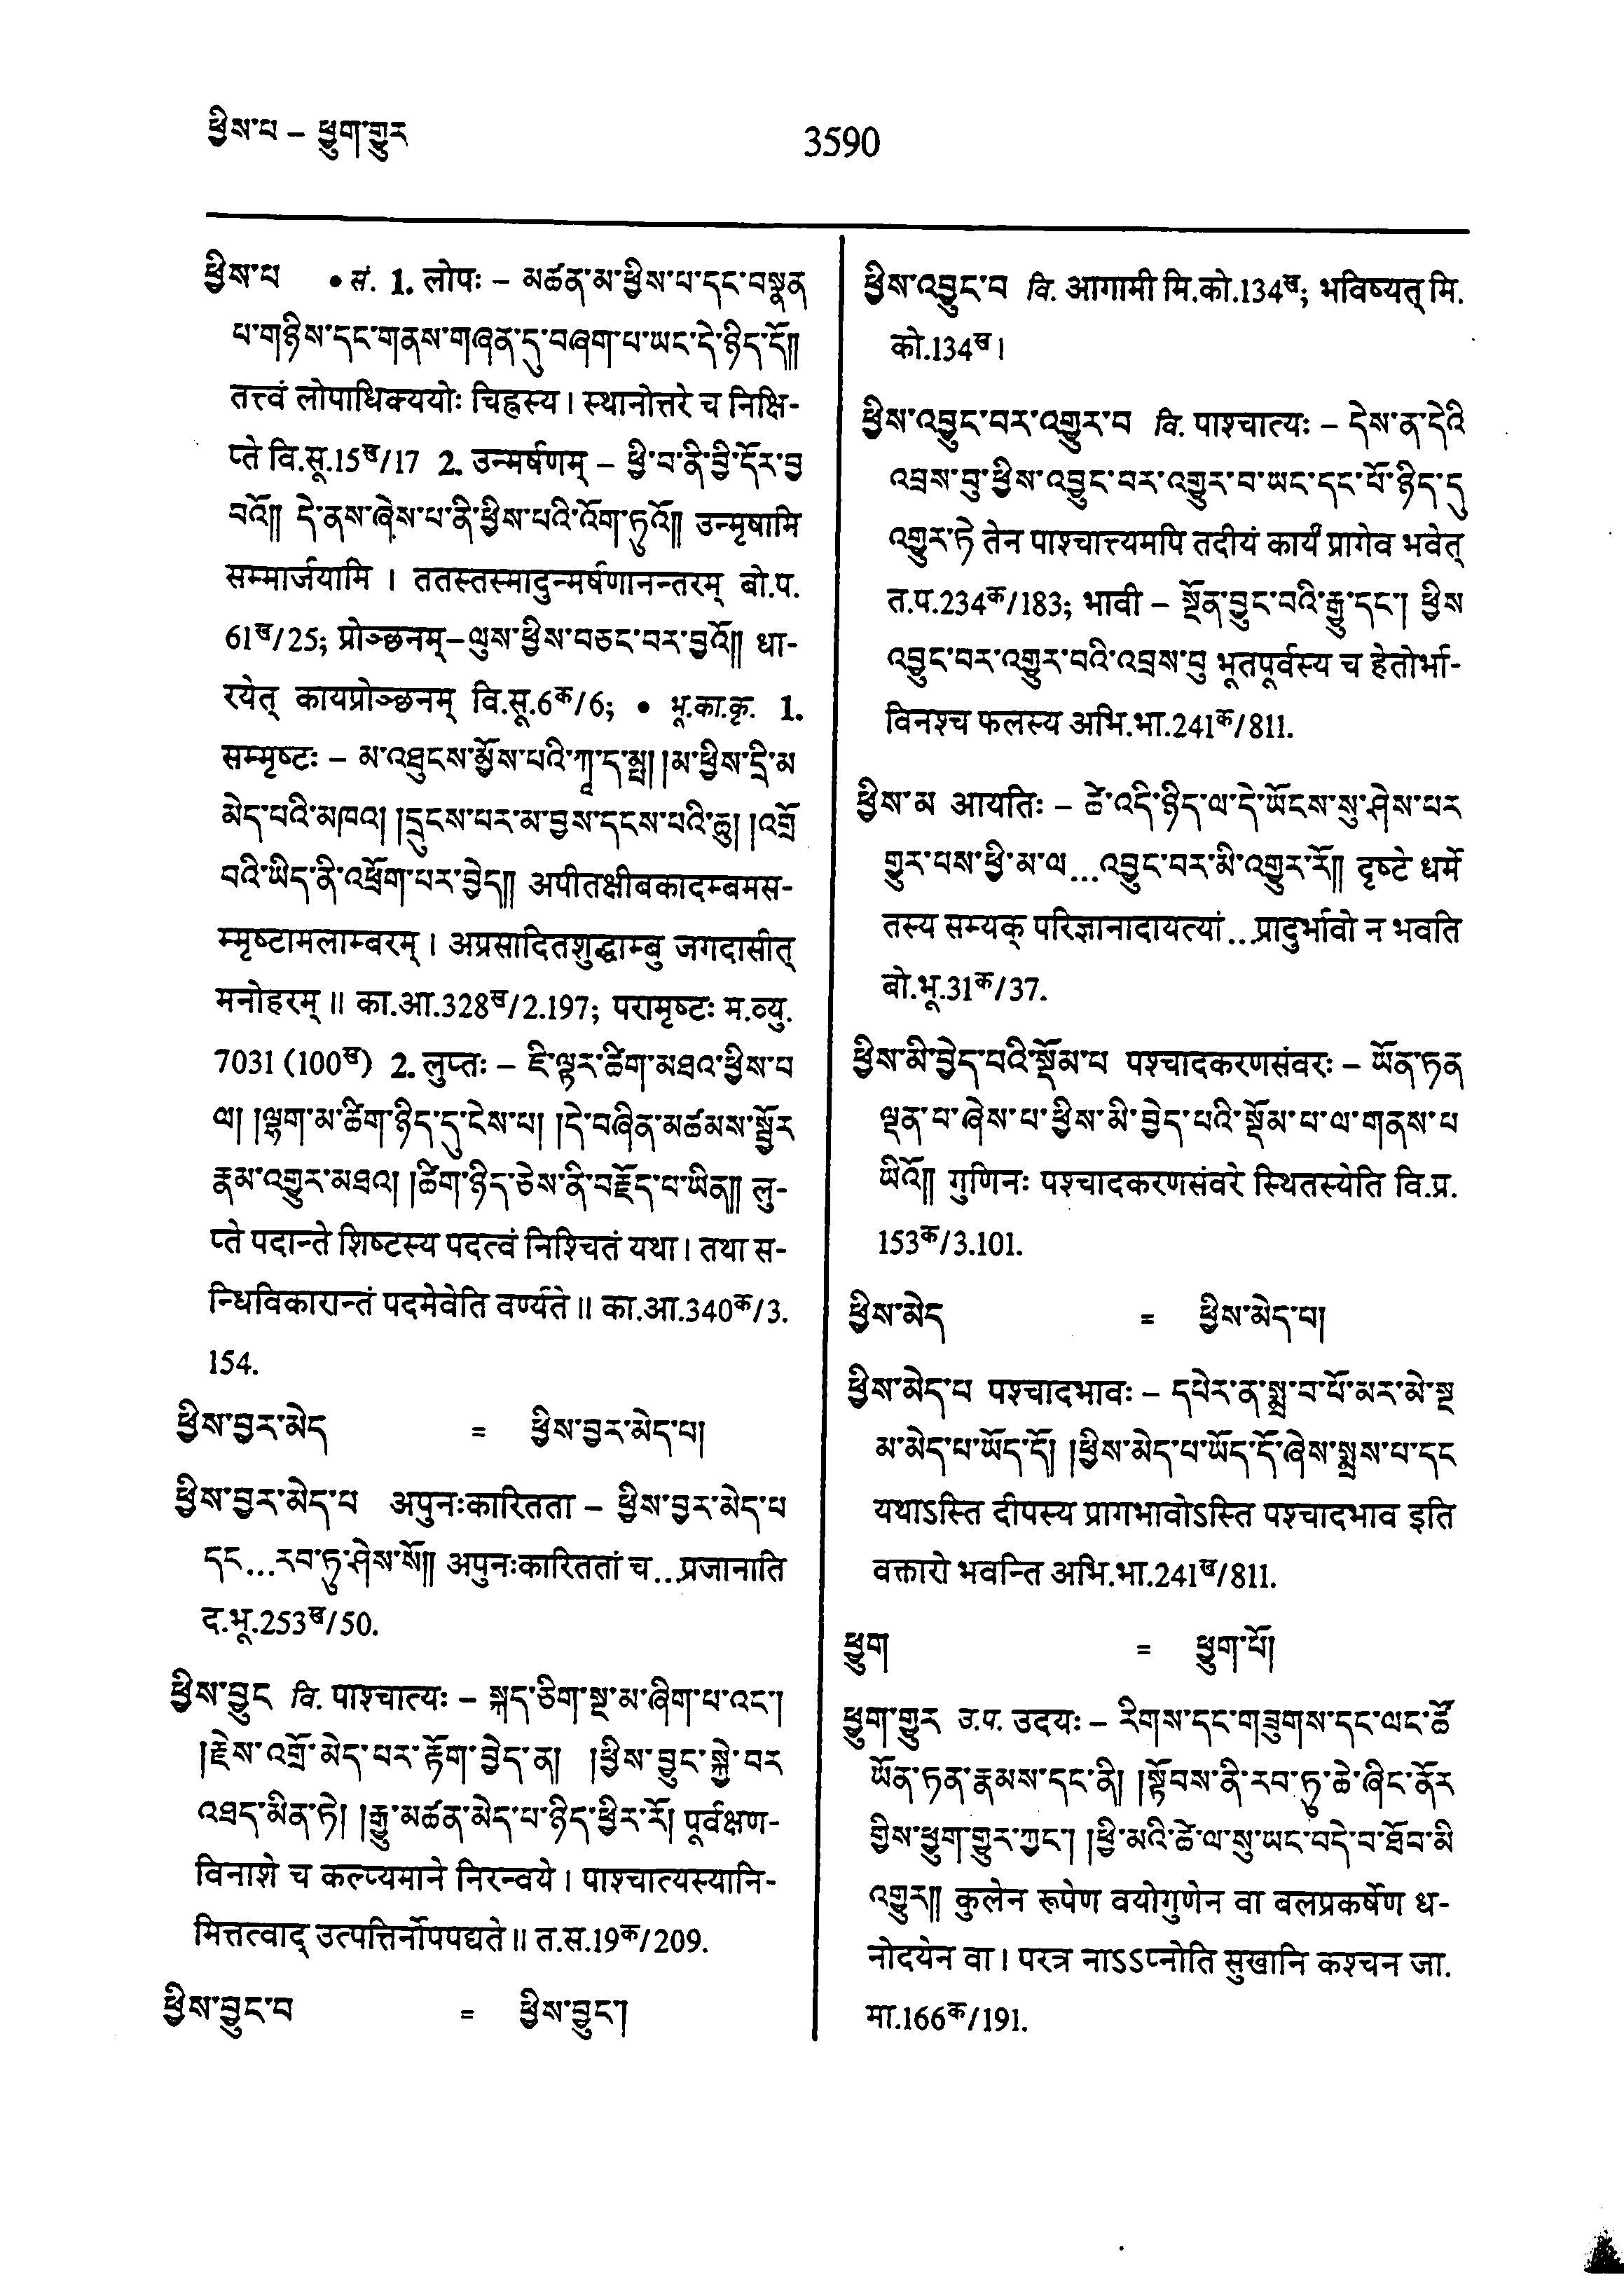 ཕྱིས་པ – ཕྱུག་གྱུར
3590
ཕྱིས་པ • सं. 1. लोपः – མཚན་མ་ཕྱིས་པ་དང་བསྣན
པ་གཉིས་དང་གནས་གཞན་དུ་བཞག་པ་ཡང་དེ་ཉིད་དོ༎
तत्त्वं लोपाधिक्ययोः चिह्नस्य । स्थानोत्तरे च निक्षि-
प्ते वि.सू.15ख/17 2. उन्मर्षणम् – ཕྱི་བ་ནི་བྱི་དོར་བྱ
བའོ༎ དེ་ནས་ཞེས་པ་ནི་ཕྱིས་པའི་འོག་ཏུའོ༎ उन्मृषामि
सम्मार्जयामि । ततस्तस्मादुन्मर्षणानन्तरम् बो.प.
61ख/25; प्रोञ्छनम्–ལུས་ཕྱིས་བཅང་བར་བྱའོ༎ धा-
रयेत् कायप्रोञ्छनम् वि.सू.6क/6; • भू.का.कृ. 1.
सम्मृष्टः – མ་འཐུངས་མྱོས་པའི་ཀཱ་ད་མྦ། །མ་ཕྱིས་དྲི་མ
མེད་པའི་མཁའ། །དྭངས་པར་མ་བྱས་དངས་པའི་ཆུ། །འགྲོ
བའི་ཡིད་ནི་འཕྲོག་པར་བྱེད༎ अपीतक्षीबकादम्बमस-
म्मृष्टामलाम्बरम् । अप्रसादितशुद्धाम्बु जगदासीत्
मनोहरम् ॥ का.आ.328ख/2.197; परामृष्टः म.व्यु.
7031 (100ख) 2. लुप्तः – ཇི་ལྟར་ཚིག་མཐའ་ཕྱིས་པ
ལ། །ལྷག་མ་ཚིག་ཉིད་དུ་ངེས་པ། །དེ་བཞིན་མཚམས་སྦྱོར
རྣམ་འགྱུར་མཐའ། །ཚིག་ཉིད་ཅེས་ནི་བརྗོད་པ་ཡིན༎ लु-
प्ते पदान्ते शिष्टस्य पदत्वं निश्चितं यथा । तथा स-
न्धिविकारान्तं पदमेवेति वर्ण्यते ॥ का.आ.340क/3.
154.
ཕྱིས་བྱར་མེད = ཕྱིས་བྱར་མེད་པ།
ཕྱིས་བྱར་མེད་པ अपुनःकारितता – ཕྱིས་བྱར་མེད་པ
དང...རབ་ཏུ་ཤེས་སོ༎ अपुनःकारिततां च...प्रजानाति
द.भू.253ख/50.
ཕྱིས་བྱུང वि. पाश्चात्यः – སྐད་ཅིག་སྔ་མ་ཞིག་པ་འང་།
།རྗེས་འགྲོ་མེད་པར་རྟོག་བྱེད་ན། །ཕྱིས་བྱུང་སྐྱེ་བར
འཐད་མིན་ཏེ། །རྒྱུ་མཚན་མེད་པ་ཉིད་ཕྱིར་རོ། पूर्वक्षण-
विनाशे च कल्प्यमाने निरन्वये । पाश्चात्यस्यानि-
मित्तत्वाद् उत्पत्तिर्नोपपद्यते ॥ त.स.19क/209.
ཕྱིས་བྱུང་བ = ཕྱིས་བྱུང་།
ཕྱིས་འབྱུང་བ वि. आगामी मि.को.134ख; भविष्यत् मि.
को.134ख ।
ཕྱིས་འབྱུང་བར་འགྱུར་བ वि. पाश्चात्यः – དེས་ན་དེའི
འབྲས་བུ་ཕྱིས་འབྱུང་བར་འགྱུར་བ་ཡང་དང་པོ་ཉིད་དུ
འགྱུར་ཏེ तेन पाश्चात्त्यमपि तदीयं कार्यं प्रागेव भवेत्
त.प.234क/183; भावी – སྔོན་བྱུང་བའི་རྒྱུ་དང་། ཕྱིས
འབྱུང་བར་འགྱུར་བའི་འབྲས་བུ भूतपूर्वस्य च हेतोर्भा-
विनश्च फलस्य अभि.भा.241क/811.
ཕྱིས་མ आयतिः – ཚེ་འདི་ཉིད་ལ་དེ་ཡོངས་སུ་ཤེས་པར
གྱུར་པས་ཕྱི་མ་ལ...འབྱུང་བར་མི་འགྱུར་རོ༎ दृष्टे धर्मे
तस्य सम्यक् परिज्ञानादायत्यां...प्रादुर्भावो न भवति
बो.भू.31क/37.
ཕྱིས་མི་བྱེད་པའི་སྡོམ་པ पश्चादकरणसंवरः – ཡོན་ཏན
ལྡན་པ་ཞེས་པ་ཕྱིས་མི་བྱེད་པའི་སྡོམ་པ་ལ་གནས་པ
ཡིའོ༎ गुणिनः पश्चादकरणसंवरे स्थितस्येति वि.प्र.
153क/3.101.
ཕྱིས་མེད = ཕྱིས་མེད་པ།
ཕྱིས་མེད་པ पश्चादभावः – དཔེར་ན་སྨྲ་བ་པོ་མར་མེ་སྔ
མ་མེད་པ་ཡོད་དོ། །ཕྱིས་མེད་པ་ཡོད་དོ་ཞེས་སྨྲས་པ་དང
यथाऽस्ति दीपस्य प्रागभावोऽस्ति पश्चादभाव इति
वक्तारो भवन्ति अभि.भा.241ख/811.
ཕྱུག = ཕྱུག་པོ།
ཕྱུག་གྱུར उ.प. उदयः – རིགས་དང་གཟུགས་དང་ལང་ཚོ
ཡོན་ཏན་རྣམས་དང་ནི། །སྟོབས་ནི་རབ་ཏུ་ཆེ་ཞིང་ནོར
གྱིས་ཕྱུག་གྱུར་ཀྱང་། །ཕྱི་མའི་ཚེ་ལ་སུ་ཡང་བདེ་བ་ཐོབ་མི
འགྱུར༎ कुलेन रूपेण वयोगुणेन वा बलप्रकर्षेण ध-
नोदयेन वा । परत्र नाऽऽप्नोति सुखानि कश्चन जा.
मा.166क/191.